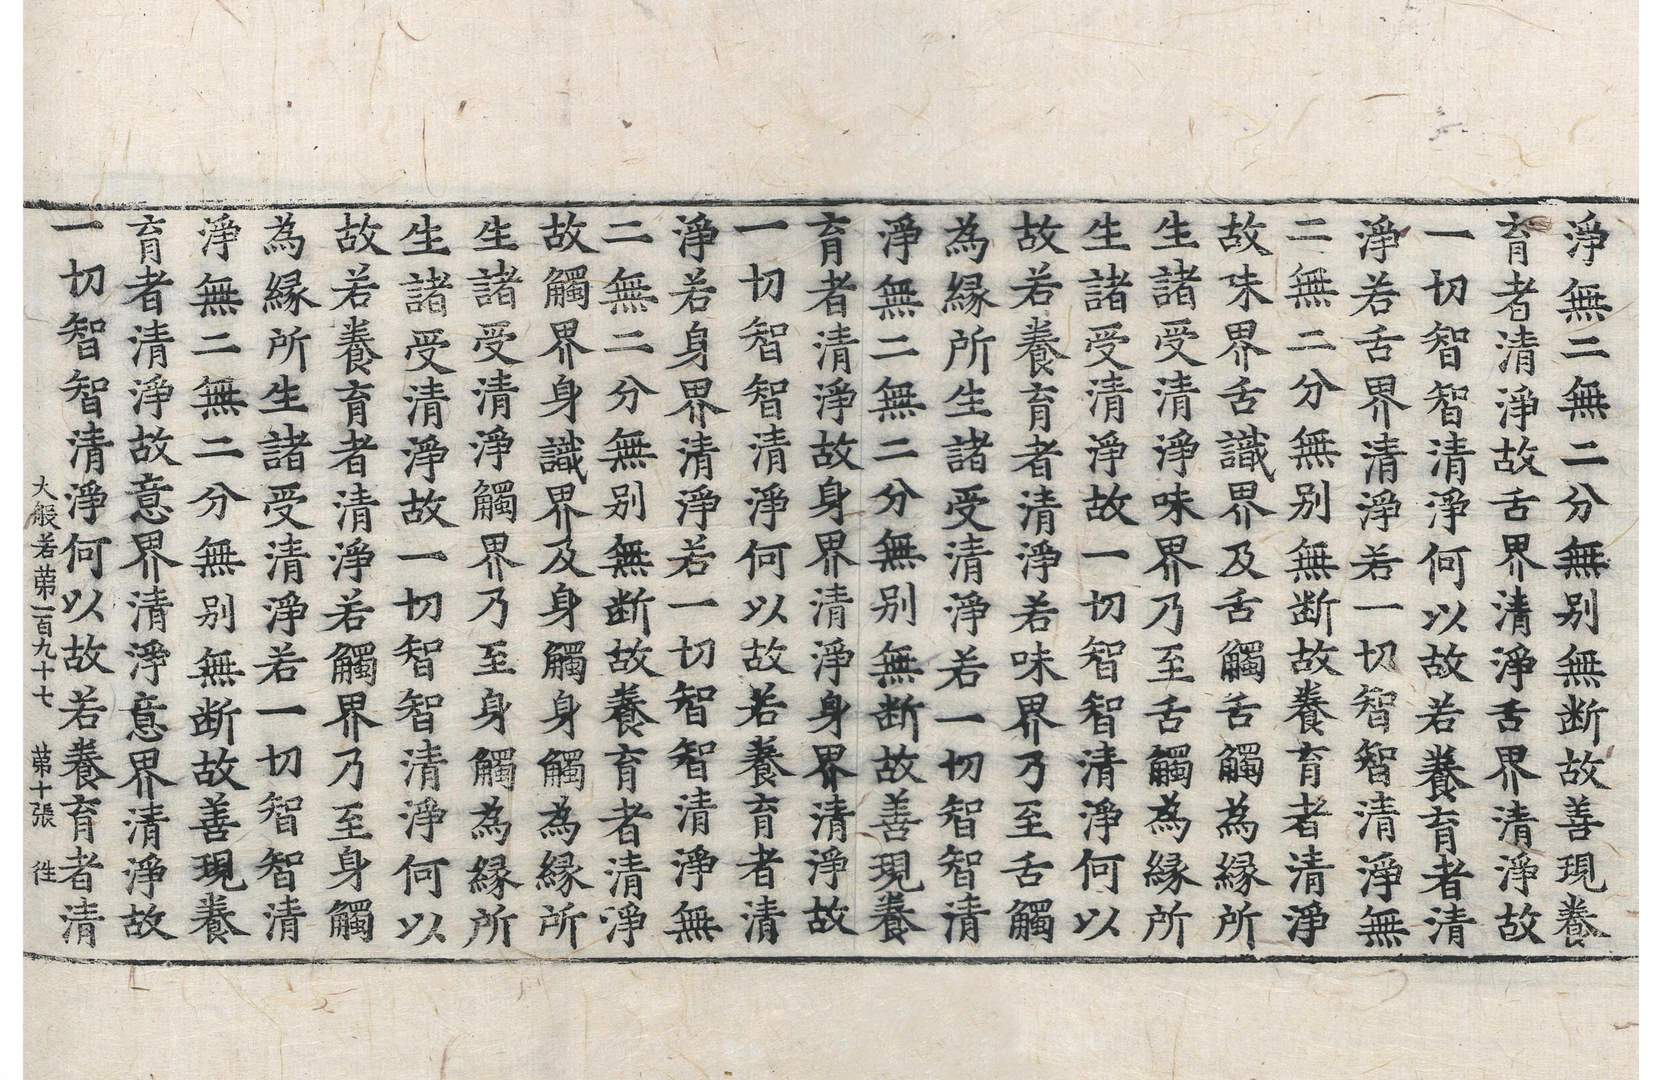 淨無二無二分無別無断故善現養
育者清淨故舌界清淨舌界清淨故
一切智智清淨何以故若養育者清
淨若舌界清淨若一切智智清淨無
二無二分無別無断故養育者清淨
故味界舌識界及舌觸舌觸為縁所
生諸受清淨味界乃至舌觸為縁所
生諸受清淨故一切智智清淨何以
故若養育者清淨若味界乃至舌觸
為縁所生諸受清淨若一切智智清
淨無二無二分無別無断故善現養
育者清淨故身界清淨身界清淨故
一切智智清淨何以故若養育者清
淨若身界清淨若一切智智清淨無
二無二分無別無断故養育者清淨
故觸界身識界及身觸身觸為縁所
生諸受清淨觸界乃至身觸為縁所
生諸受清淨故一切智智清淨何以
故若養育者清淨若觸界乃至身觸
為縁所生諸受清淨若一切智智清
淨無二無二分無別無断故善現養
育者清淨故意界清淨意界清淨故
一切智智清淨何以故若養育者清
大般若苐二百九十七 苐十張 徃